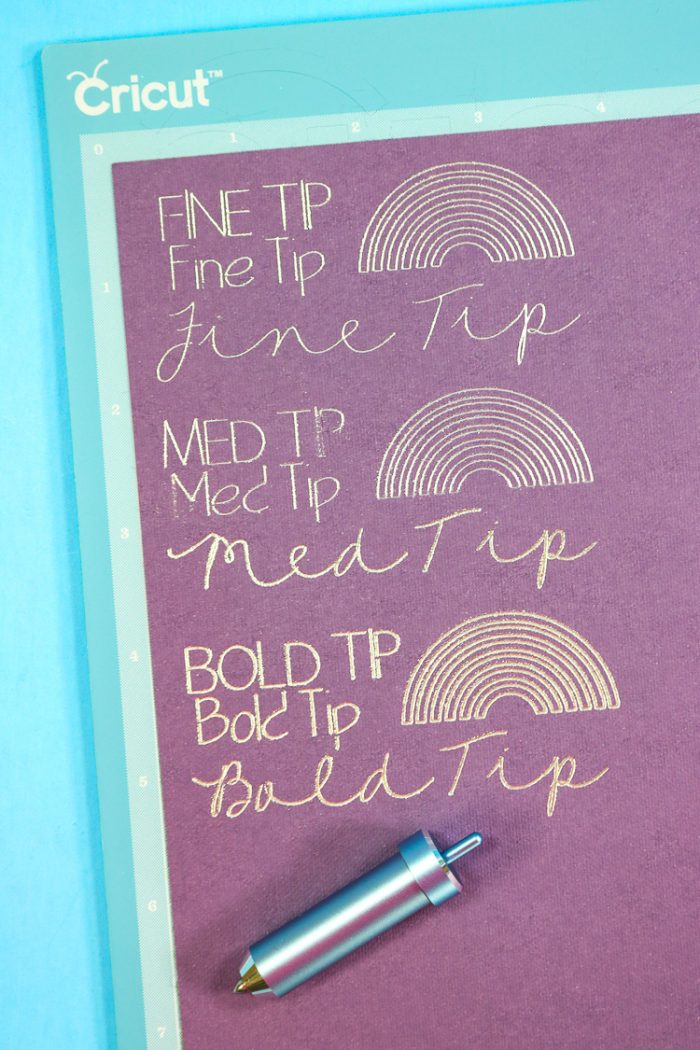 Cricut™
0 1 2 3 4
FINE TIP
Fine Tip
1
Fine Tip
2
MED TIP
Med Tip
3
Med Tip
4
BOLD TIP
Bold Tip
5
Bold Tip
6
7